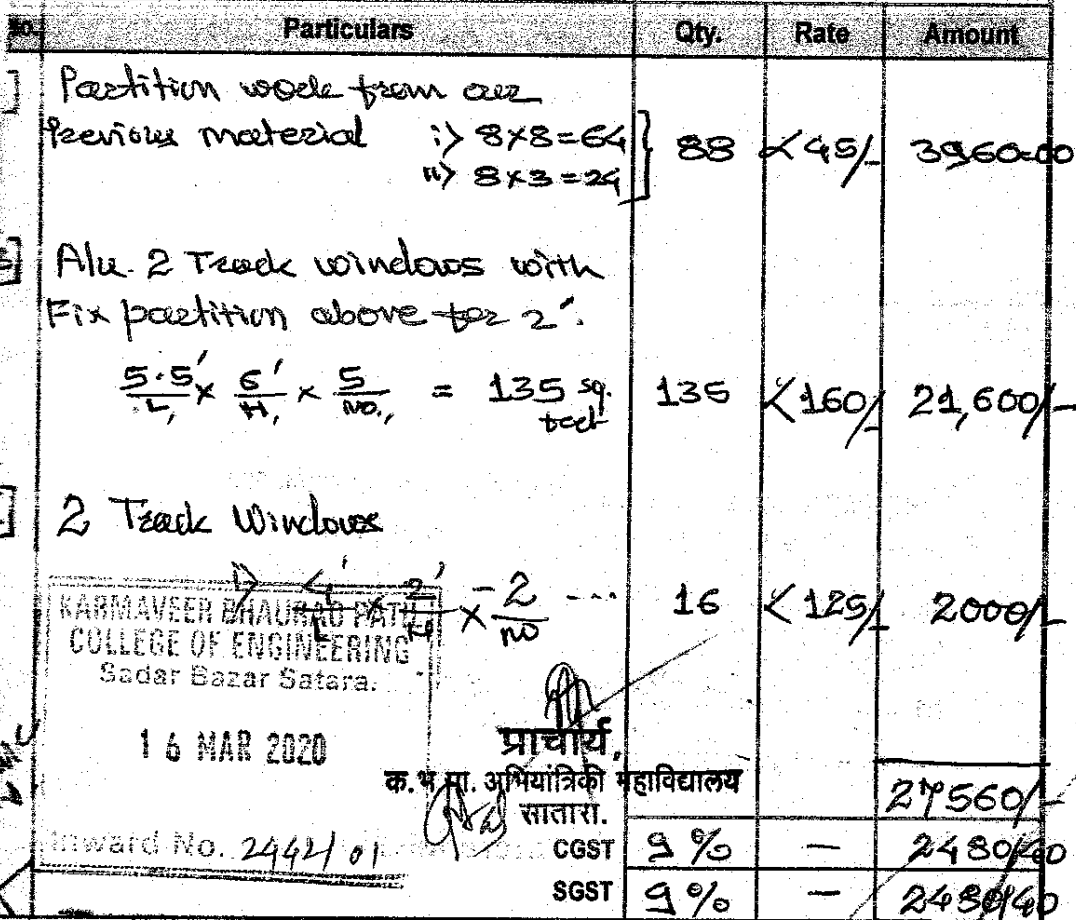 No. Particulars Qty. Rate Amount
Partition work from our
Previous material i> 8x8=64
ii> 8x3=24
88 <45/- 3960=00
Alu. 2 Track windows with
Fix partition above for 2'.
5.5'/L, x 6'/H, x 5/NO., = 135 sq. feet 135 <160/- 21,600/-
2 Track Windows
4'/L x 2'/H x 2/NO --- 16 <125/- 2000/-
KARMAVEER BHAURAO PATIL
COLLEGE OF ENGINEERING
Sadar Bazar Satara.
16 MAR 2020
प्राचार्य,
क.भ.पा. अभियांत्रिकी महाविद्यालय
सातारा.
27560/-
Inward No. 2442/01
CGST 9% — 2480/40
SGST 9% — 2480/40